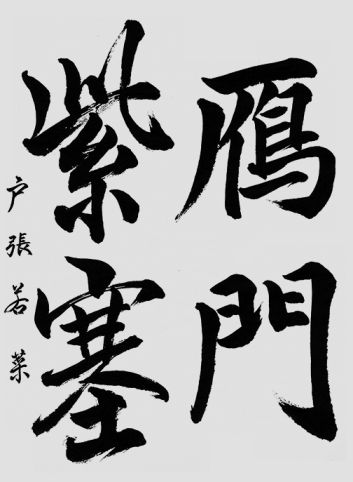 鴈門
紫塞
戸張若菜